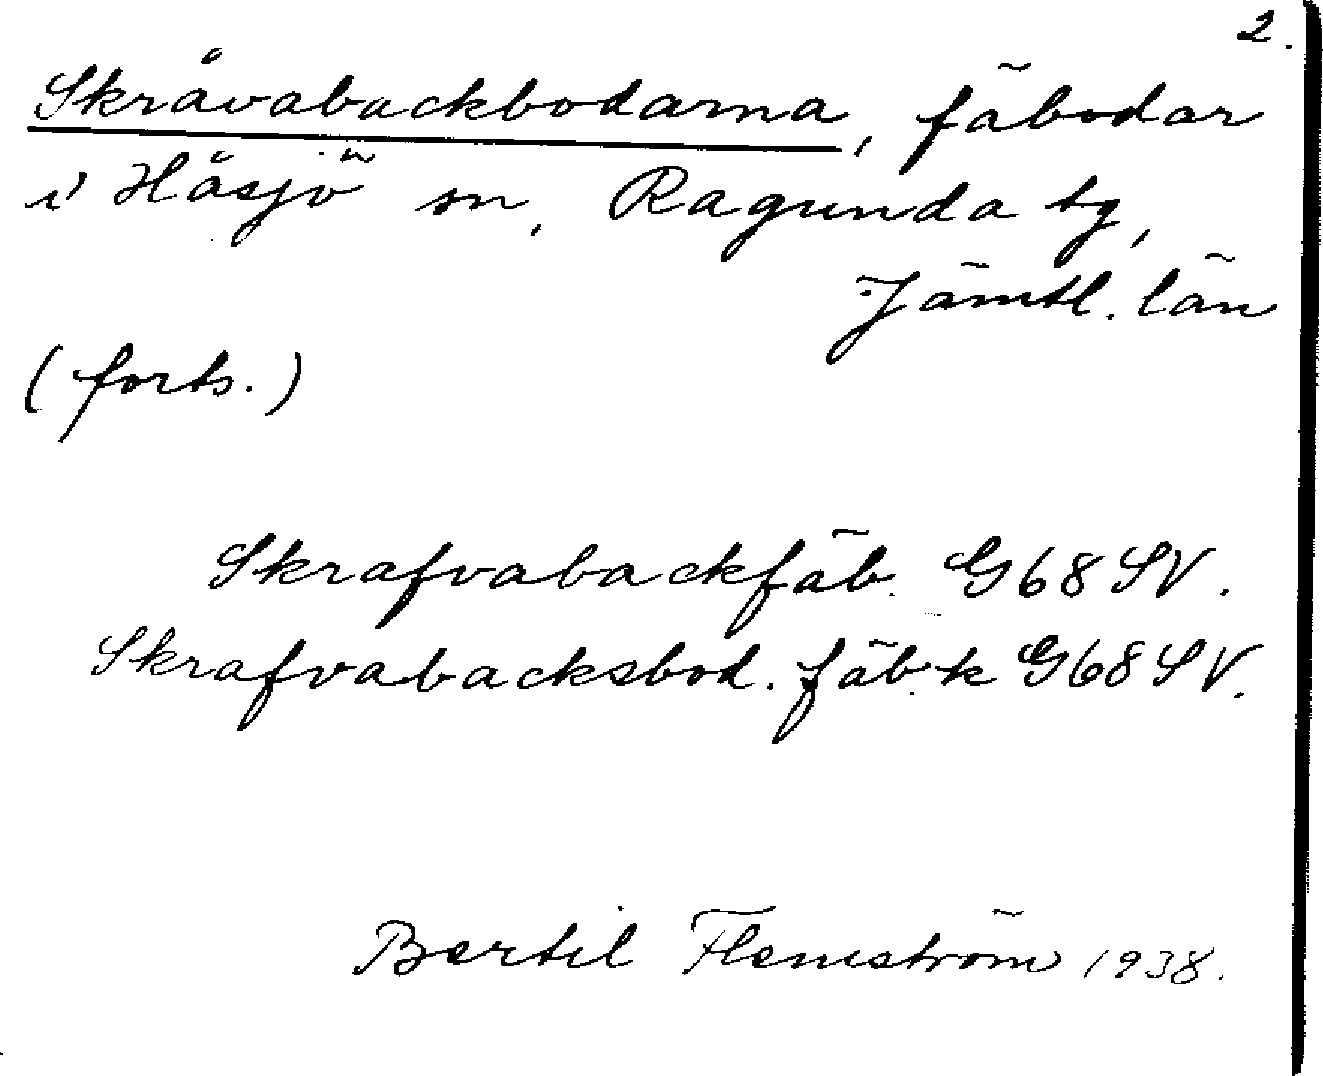 2.
Skråvabackbodarna, fäbodar
i Håsjö sn, Ragunda tg,
Jämtl. län
(forts.)
Skrafvabackfäb. G68SV.
Skrafvabacksbod. fäb.k G68SV.
Bertil Flemström 1938.